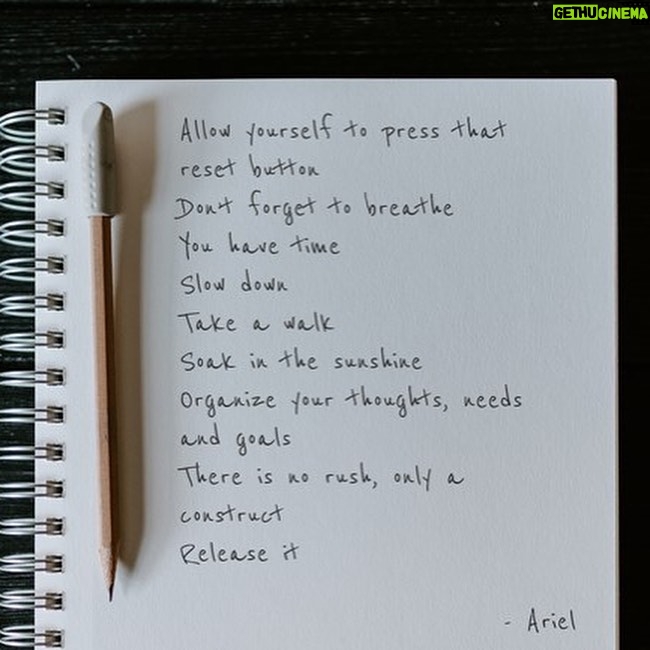 GETHUCINEMA
Allow yourself to press that
reset button
Don't forget to breathe
You have time
Slow down
Take a walk
Soak in the sunshine
Organize your thoughts, needs
and goals
There is no rush, only a
construct
Release it
- Ariel